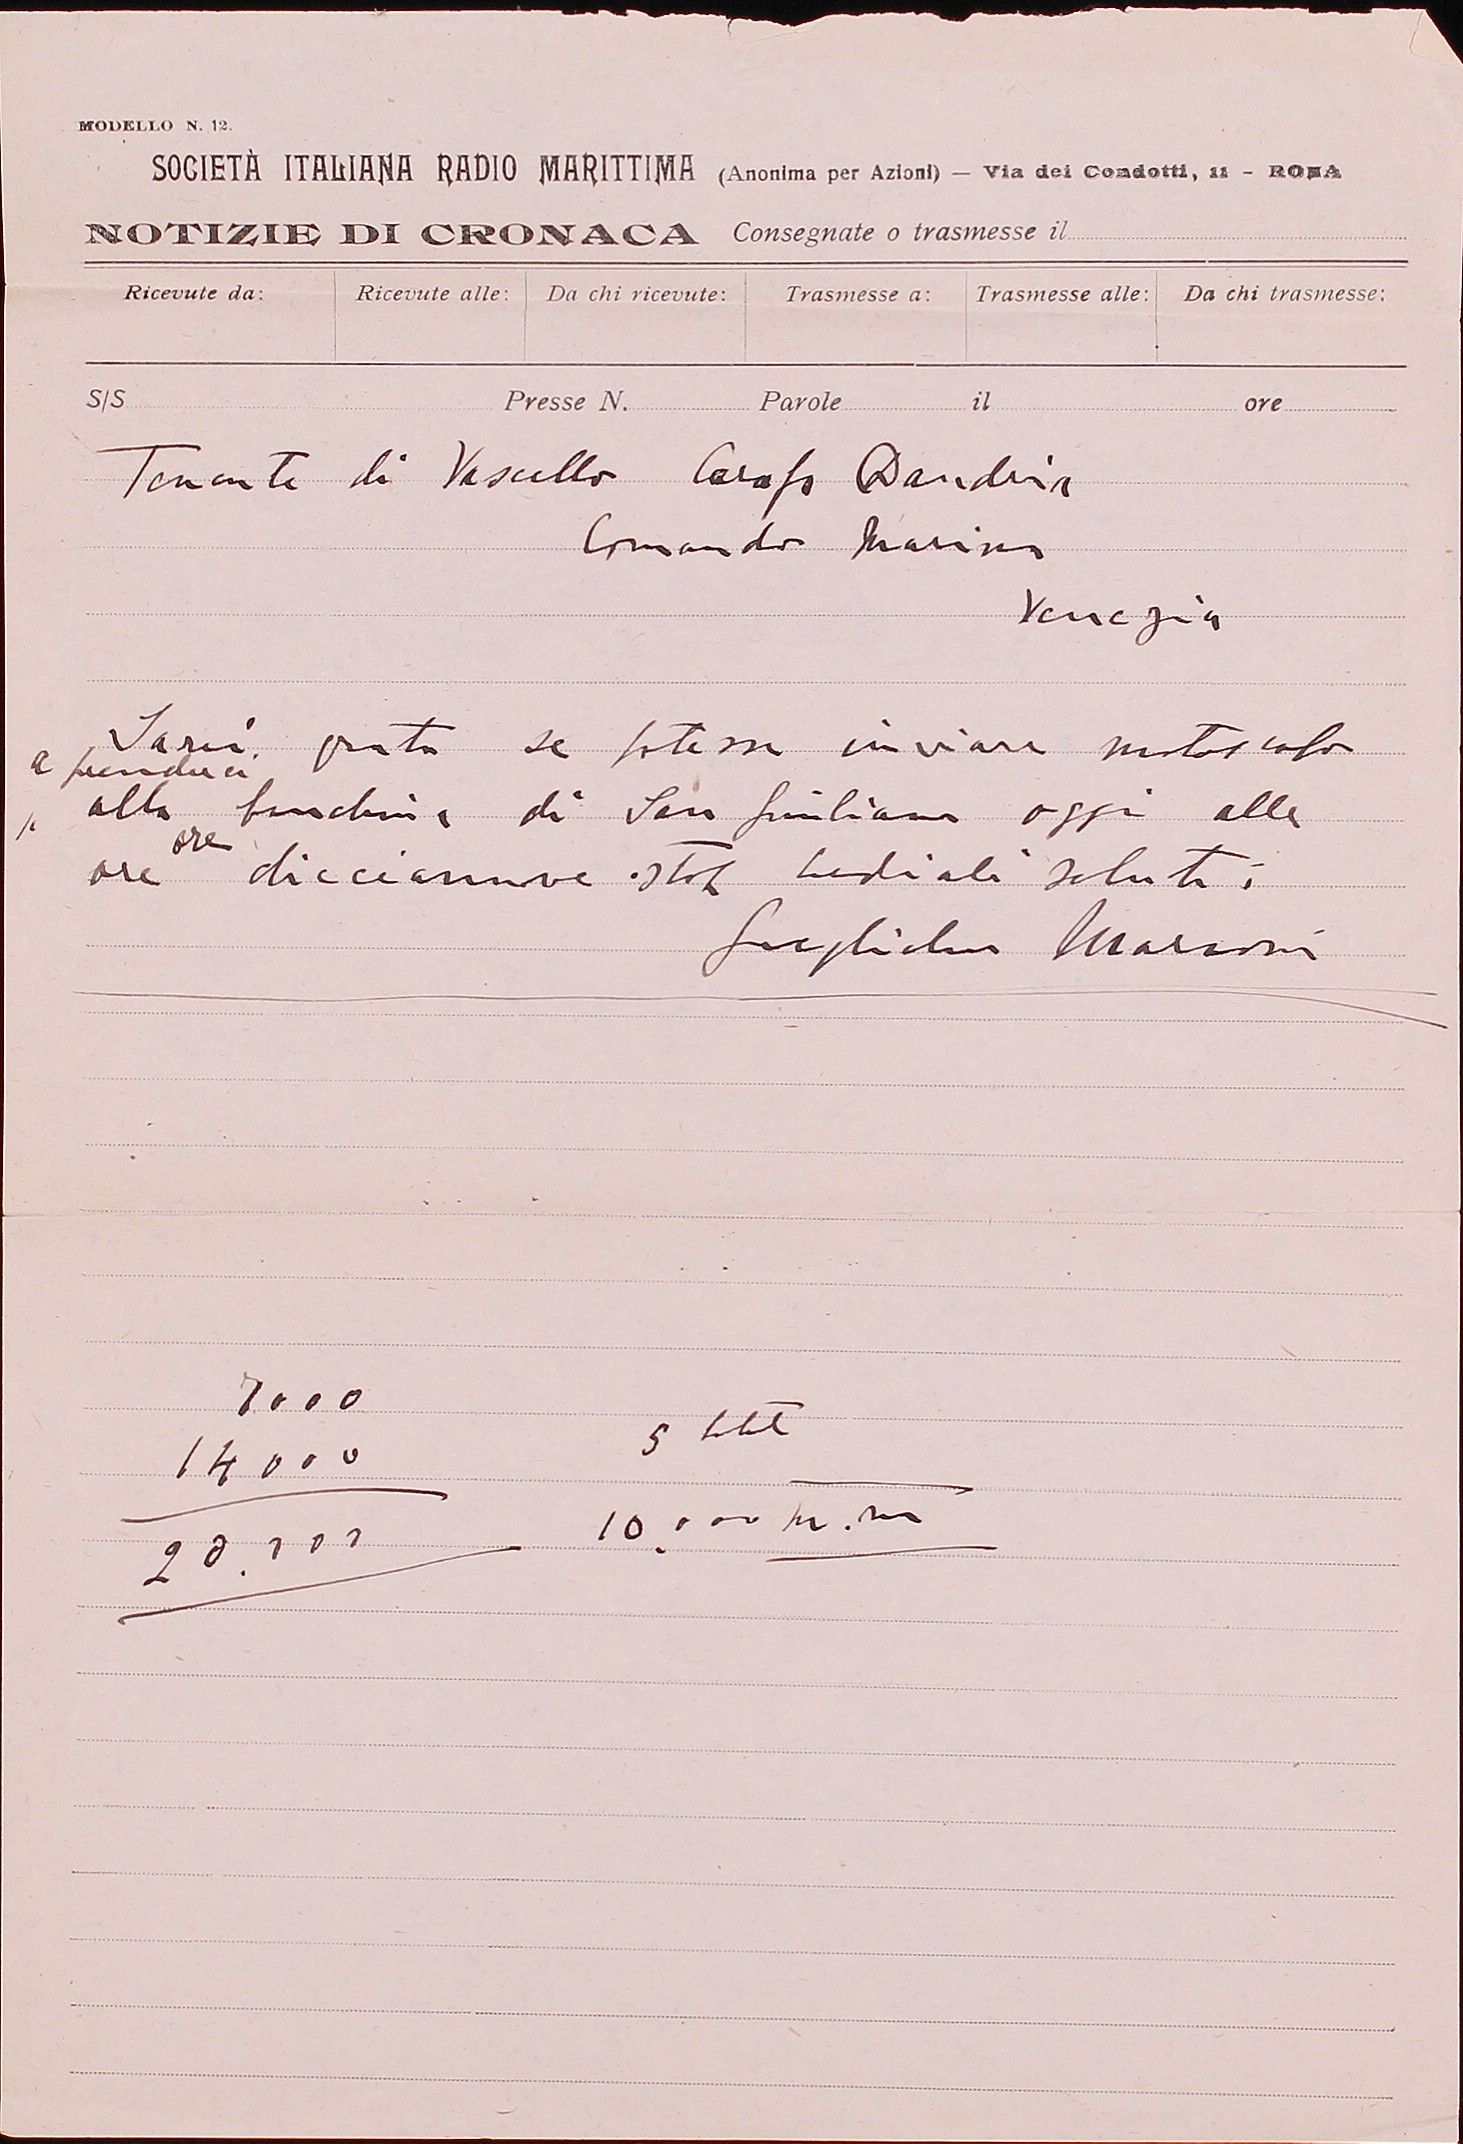 MODELLO N. 12.
SOCIETÀ ITALIANA RADIO MARITTIMA (Anonima per Azioni) — Via dei Condotti, 11 - ROMA
NOTIZIE DI CRONACA Consegnate o trasmesse il
Ricevute da: Ricevute alle: Da chi ricevute: Trasmesse a: Trasmesse alle: Da chi trasmesse:
S/S Presse N. Parole il ore
Tenente di Vascello Carafa Dandria
Comando Marina
Venezia
Sarei grato se potesse inviare motoscafo
a prenderci
alla banchina di San Giuliano oggi alle
ore
ore diccianove stop cordiali saluti
Guglielmo Marconi
7000
14000
5
10.000 m.m